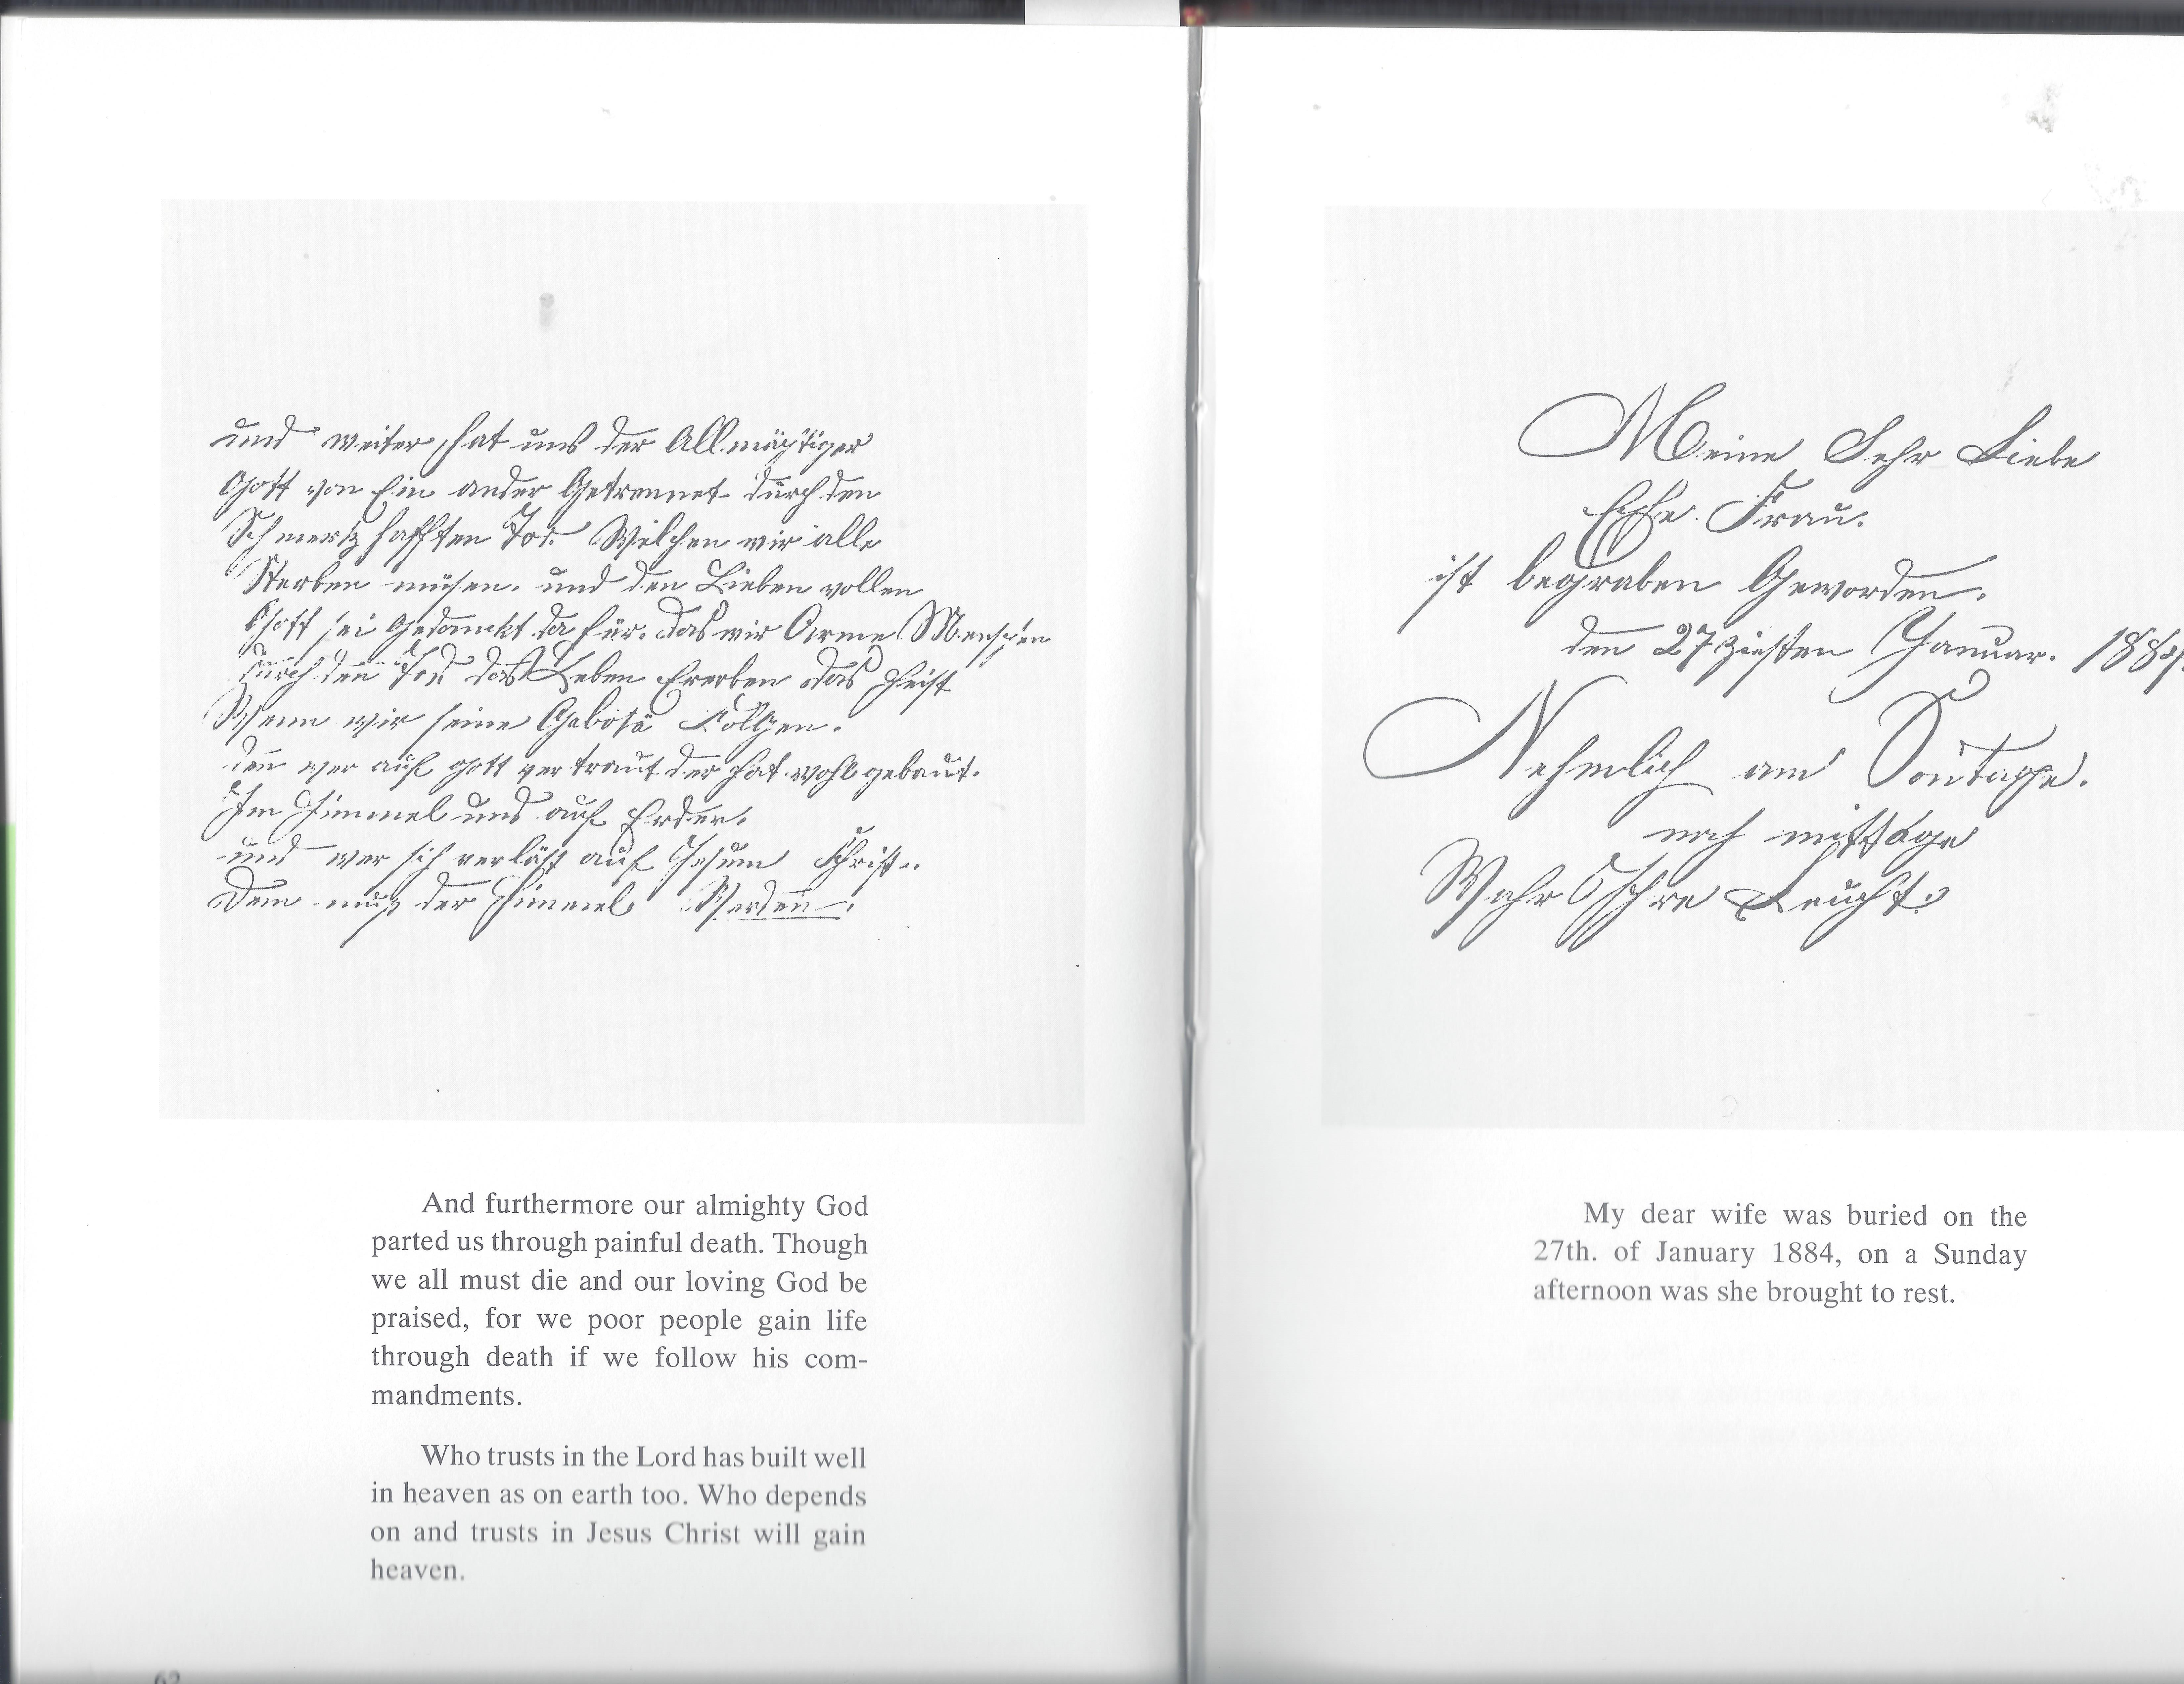 und weiter hat uns der Allmächtiger
Gott von Ein ander Getrennet durch den
Schmertz hafften Tod. Welchen wir alle
Sterben müsen. und den Lieben vollen
Gott sei Gedanckt da für. das wir Arme Menschen
durch den Tod das Leben Ererben das heist
Wenn wir seine Folgen.
den wer auf gott ver traut der hat wohl gebaut.
Im Himmel und auf Erden.
und wer sich verläst auf Jesum Christ..
Dem muß der Himmel Werden.
And furthermore our almighty God
parted us through painful death. Though
we all must die and our loving God be
praised, for we poor people gain life
through death if we follow his com-
mandments.
Who trusts in the Lord has built well
in heaven as on earth too. Who depends
on and trusts in Jesus Christ will gain
heaven.
Meine Sehr Liebe
Ehe Frau.
ist begraben Geworden.
den 27ziesten Januar. 1884
Nehmlich am Sontage.
nach mittage
Wahr Ihre Leucht.
My dear wife was buried on the
27th. of January 1884, on a Sunday
afternoon was she brought to rest.